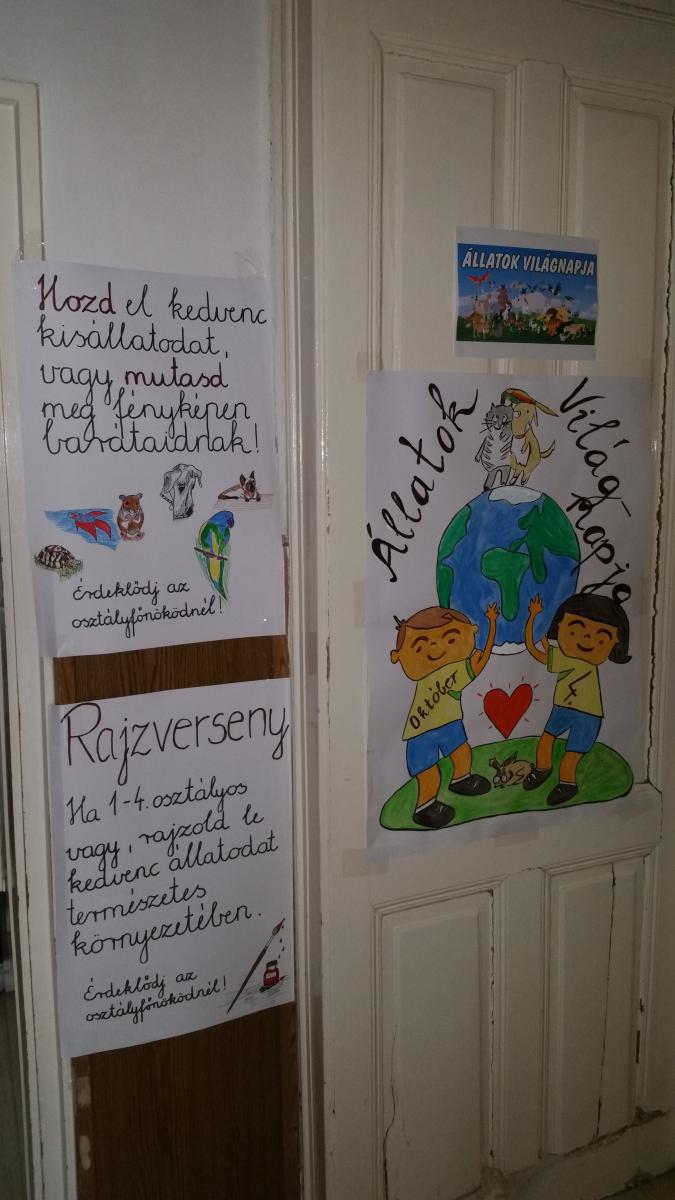 Hozd el kedvenc
kisállatodat,
vagy mutasd
meg fényképen
barátaidnak!
Érdeklődj az
osztályfőnöködnél!
Rajzverseny
Ha 1-4. osztályos
vagy, rajzold le
kedvenc állatodat
természetes
környezetében.
Érdeklődj az
osztályfőnöködnél!
ÁLLATOK VILÁGNAPJA
Állatok
Világ-
napja
Október
4.